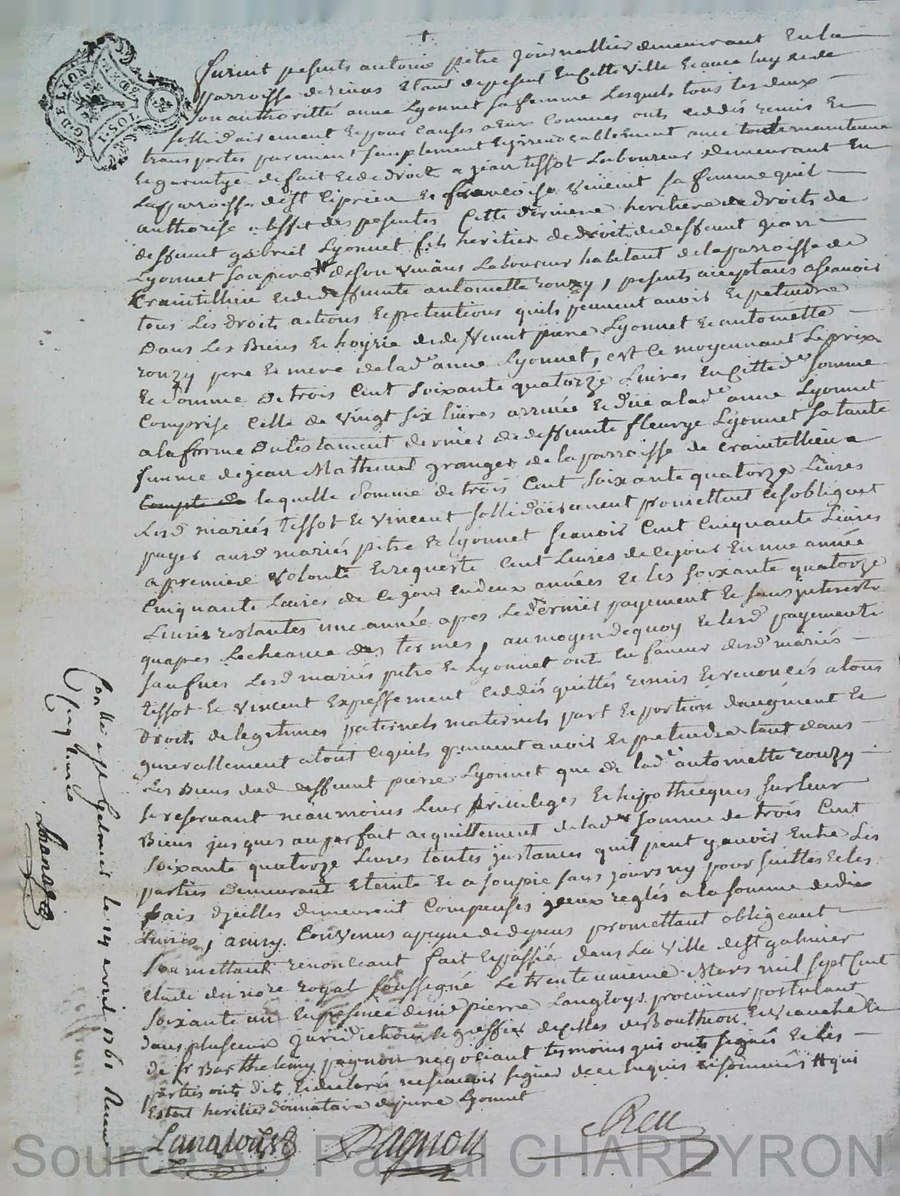 G. DE LION
DEUX SOLS
furent présents antoine pitre Journallier demeurant En la
parroisse de rivas Etant de present En Cette Ville Et avec luy et de
son authoritté anne Lyonnet sa femme Lesquels tous les deux
sollidairement Et pour Causes a Eux Connues onts ceddés remis Et
transportés purement simplement Et irrevocablement avec toutte maintenue
Et garentye de fait Et de droit a jean tissot Laboureur demeurant En
La parroisse de st Ciprien Et francoise Vincent sa femme quil
authorise a Leffet des presentes Cette derniere heritiere de droits de
deffunt gabriel Lyonnet fils heritier de droit de deffunt jean
Lyonnet son pere # de son Vivans Laboureur habitant de la parroisse de
Craintillieu Et de deffunte antoinette rouzy, presents acceptans a Scavoir
tous Les droits actions Et pretentions quils peuvent avoir Et pretendre
Dans Les Biens Et hoyrie de deffunt pierre Lyonnet Et antoinette
rouzy pere Et mere de lad. anne Lyonnet, est Ce moyennant Le prix
Et Somme de trois Cent Soixante quatorze Livres En Cette de Somme
Comprise Celle de Vingt Six livres arrivée Et düe a lad. anne Lyonnet
a la forme du testament dernier de deffunte fleurye Lyonnet sa tante
femme de jean Mathieu granger de la parroisse de Craintillieu
laquelle Somme de trois Cent Soixante quatorze Livres
Lesd. mariés tissot Et Vincent sollidairement promettent Et sobligent
payer ausd. mariés pitre Et Lyonnet Scavoir Cent Cinquante Livres
a premiere Volonté Et requeste Cent Livres de Ce jour En une année
Cinquante Livres de Ce jour En deux années Et Les Soixante quatorze
Livres restantes une année apres Le dernier payement Et sans interests
quapres Lecheance des termes, au moyen de quoy Et lesd. payements
saufues Lesd. mariés pitre Et Lyonnet ont En faveur desd. mariés
tissot Et Vincent Expressement ceddés quittés remis Et renoncés a tous
Droits de legitimes paternels maternels part Et portion daugment Et
generallement a tout Ce quils peuvent avoir Et pretendre tant dans
Les Biens dud. deffunt pierre Lyonnet que de lad. antoinette rouzy
se reservant neanmoins Leur privileges Et hipothecques sur leur
Biens jusques au parfait acquittement de lad. Somme de trois Cent
Soixante quatorze Livres touttes jnstances quil peut y avoir Entre Les
parties demeurant Eteinte Et assoupie sans jours ny poursuittes Et les
frais dicelles demeurent Compensés Entreux reglés a la somme de dix
Livres, ainsy Convenus a peyne de depens promettant obligeant
Soumettant renonceant fait Et passée dans La Ville de st galmier
Etude du nore royal soussigné Le trente unieme Mars mil Sept Cent
Soixante un En presence de me pierre Langloys procureur postulant
dans plusieurs juridictions Et greffier de Celles de Bouthéon Et Veauche Et
de sr Barthelemy pagnon negociant temoins qui onts signés Et Les
parties onts dits Et declarés ne scavoir signer de ce Enquis Et sommés # qui
Estoit heritier donnataire de pierre Lyonnet
Langloys Pagnon
Controllé a st Galmier le 14 avril 1761 Receu
Source AD Pascal CHAREYRON